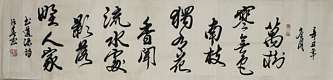 辛丑年
萬樹
寒無色
南枝
獨有花
香聞
流水處
影落
野人家